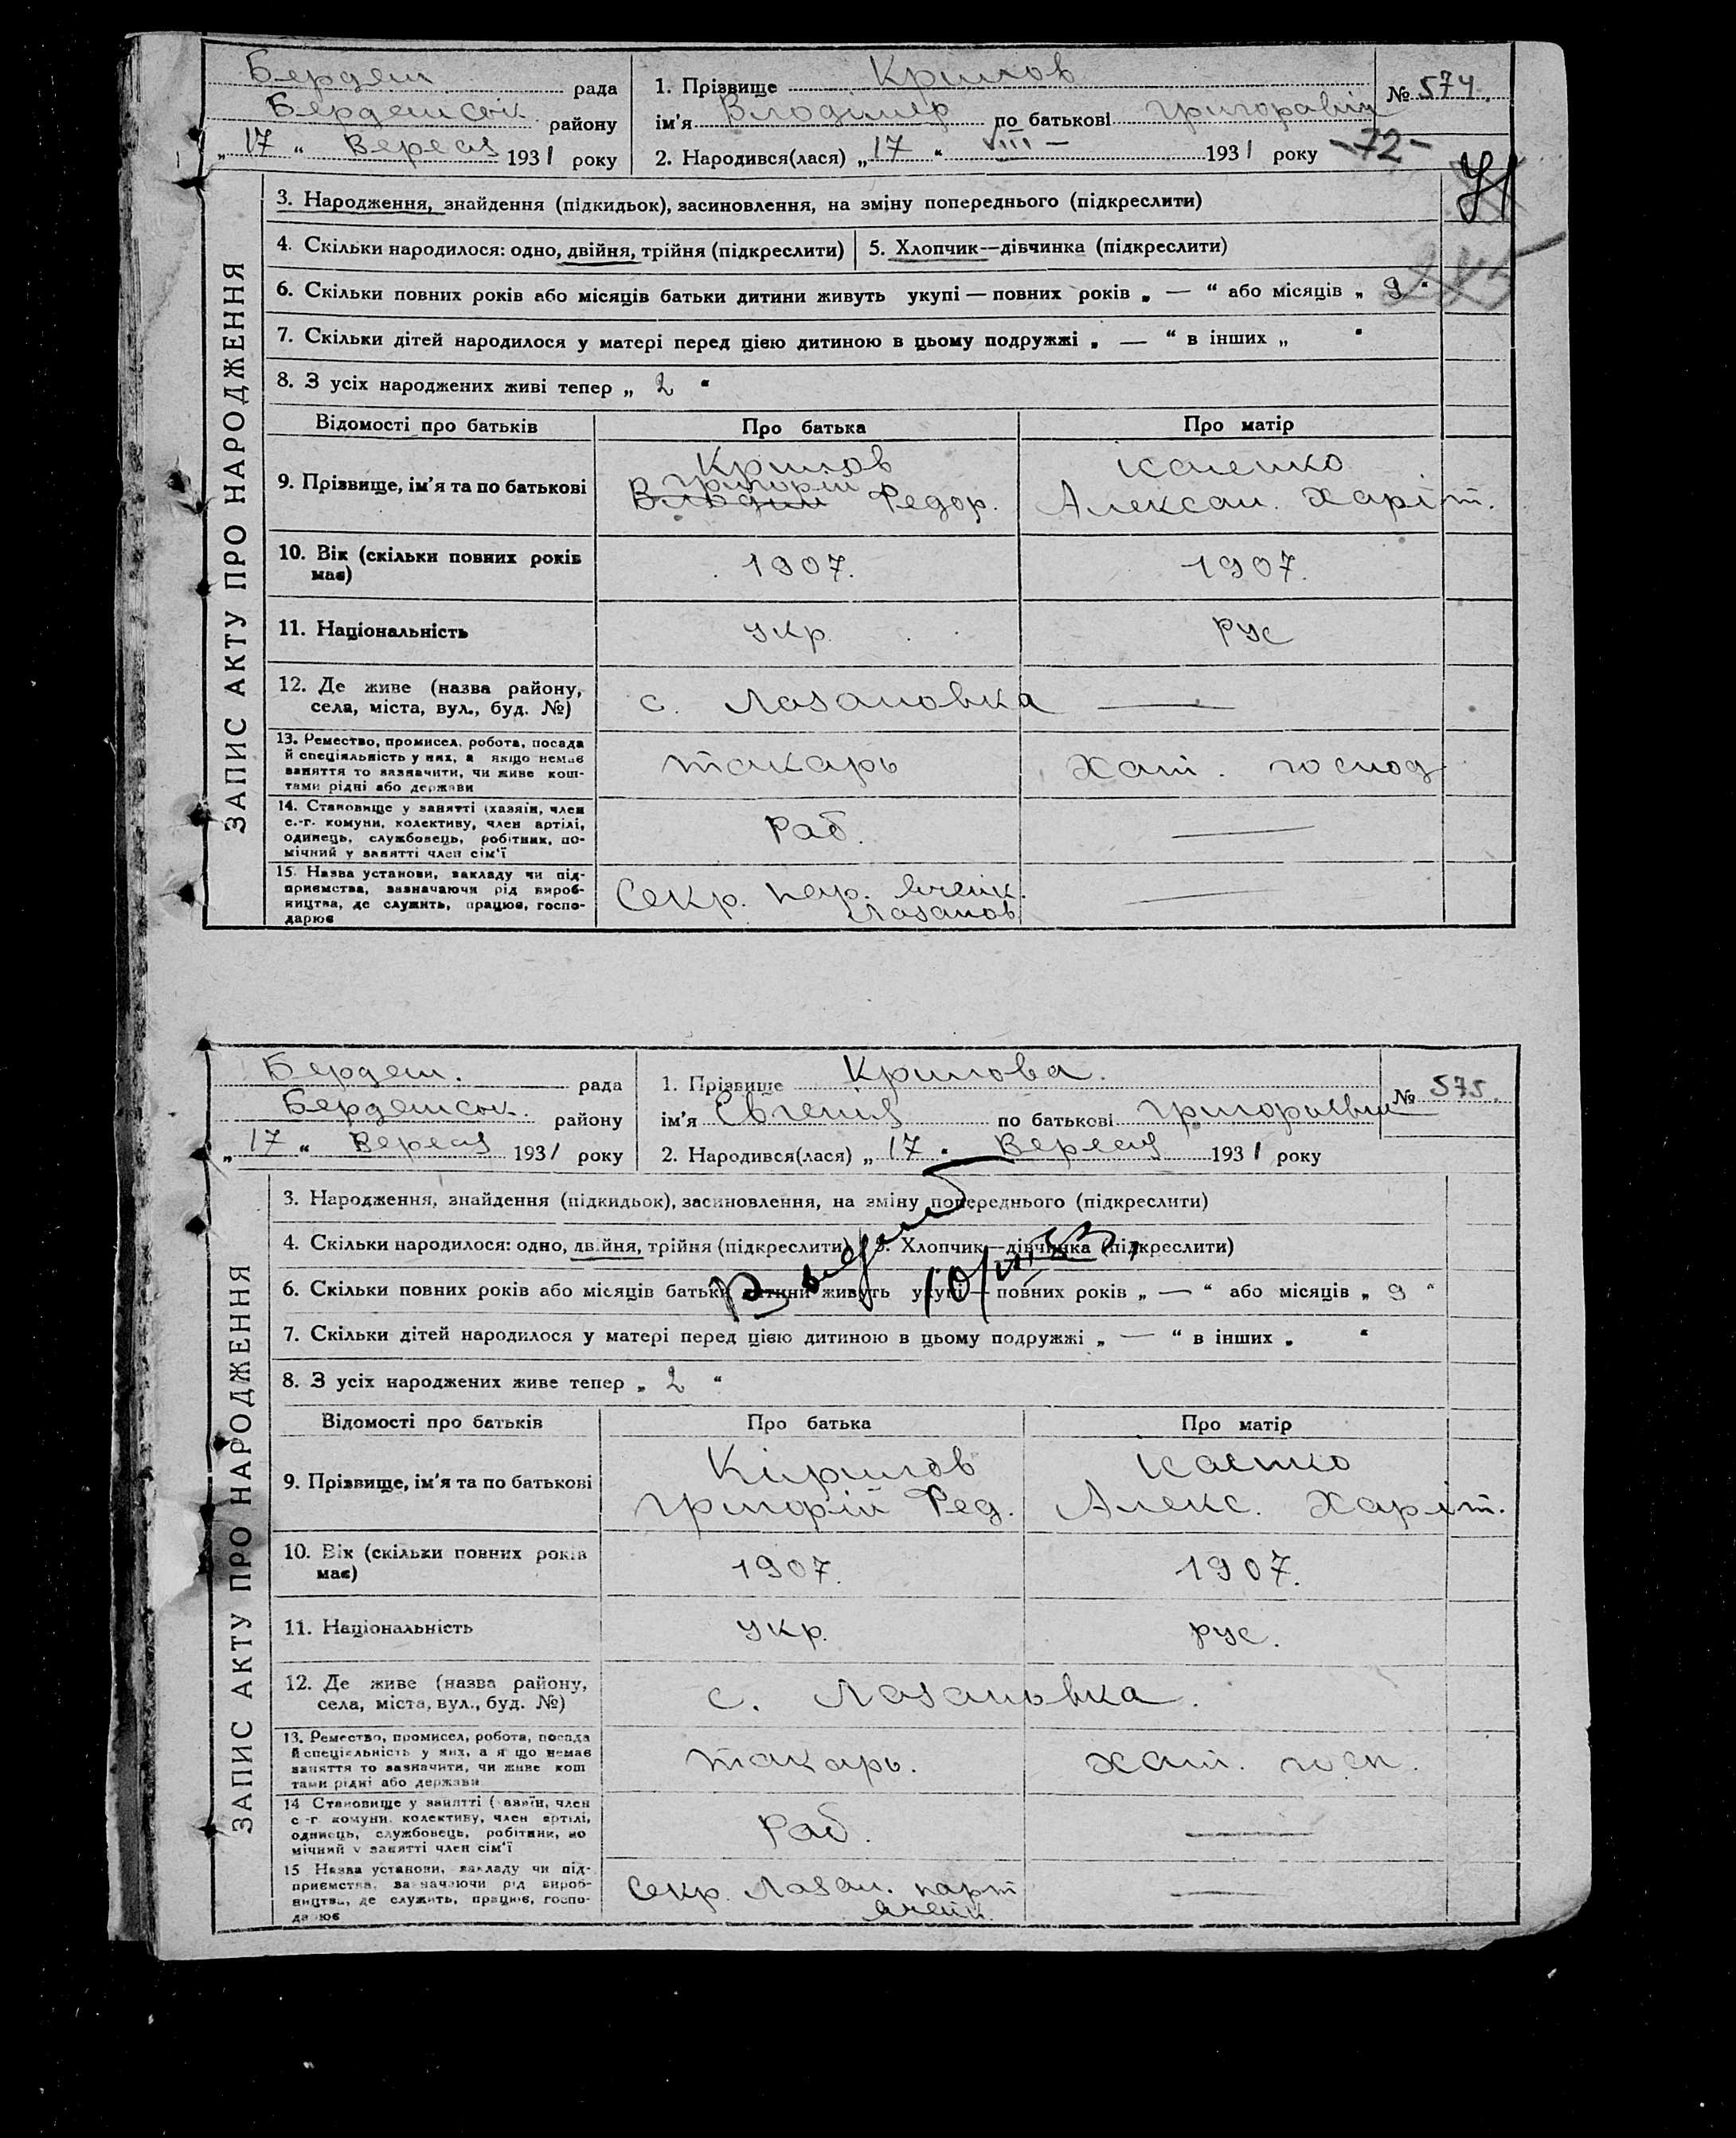 Бердян. рада
Бердянськ. району
„17“ Верес 1931 року
1. Прізвище Крилов
№ 574.
ім'я Владімер по батькові Григоравіч
2. Народився(лася) „17“ VIII – 1931 року -72-
ЗАПИС АКТУ ПРО НАРОДЖЕННЯ
3. Народження, знайдення (підкидьок), засиновлення, на зміну попереднього (підкреслити)
4. Скільки народилося: одно, двійня, трійня (підкреслити) 5. Хлопчик—дівчинка (підкреслити)
6. Скільки повних років або місяців батьки дитини живуть укупі — повних років „ — “ або місяців „ 9 “
7. Скільки дітей народилося у матері перед цією дитиною в цьому подружжі „ — “ в інших „ “
8. З усіх народжених живі тепер „ 2 “
Відомості про батьків Про батька Про матір
9. Прізвище, ім'я та по батькові
Крилов
Григорій
Федор.
Исаенко
Алексан. Харіт.
10. Вік (скільки повних років має) 1907. 1907.
11. Національність укр. рус
12. Де живе (назва району, села, міста, вул., буд. №) с. Лазановка —
13. Ремество, промисел, робота, посада
й спеціяльність у них, а якщо немає
заняття то зазначити, чи живе кош-
тами рідні або держави
токарь Хат. господ
14. Становище у занятті (хазяїн, член
с.-г. комуни, колективу, член артілі,
одинець, службовець, робітник, по-
мічний у занятті член сім'ї
Раб. —
15. Назва установи, закладу чи під-
приємства, зазначаючи рід вироб-
ництва, де служить, працює, госпо-
дарює
Секр. пар. ячейк.
Лазанов —
Бердян. рада
Бердянськ. району
„17“ Верес 1931 року
1. Прізвище Крилова.
№ 575.
ім'я Євгенія по батькові Григорьевна
2. Народився(лася) „17“ Верес 1931 року
ЗАПИС АКТУ ПРО НАРОДЖЕННЯ
3. Народження, знайдення (підкидьок), засиновлення, на зміну попереднього (підкреслити)
4. Скільки народилося: одно, двійня, трійня (підкреслити) 5. Хлопчик—дівчинка (підкреслити)
6. Скільки повних років або місяців батьки дитини живуть укупі — повних років „ — “ або місяців „ 9 “
7. Скільки дітей народилося у матері перед цією дитиною в цьому подружжі „ — “ в інших „ “
8. З усіх народжених живе тепер „ 2 “
Відомості про батьків Про батька Про матір
9. Прізвище, ім'я та по батькові
Кирилов
Григорій Фед.
Исаенко
Алекс. Харіт.
10. Вік (скільки повних років має) 1907. 1907.
11. Національність укр. рус.
12. Де живе (назва району, села, міста, вул., буд. №) с. Лазановка.
13. Ремество, промисел, робота, посада
й спеціяльність у них, а якщо немає
заняття то зазначити, чи живе кош
тами рідні або держави
токарь. Хат. госп.
14 Становище у занятті (хазяїн, член
с-г комуни колективу, член артілі,
одинець, службовець, робітник, по
мічний у занятті член сім'ї
Раб. —
15 Назва установи, закладу чи під-
приємства, зазначаючи рід вироб-
ництва, де служить, працює, госпо-
дарює
Секр. Лазан. парт
ячейк. —